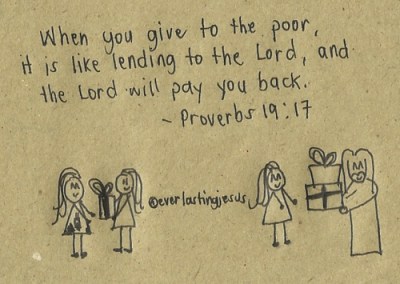 When you give to the poor,
it is like lending to the Lord, and
the Lord will pay you back.
~ Proverbs 19:17
@everlastingjesus